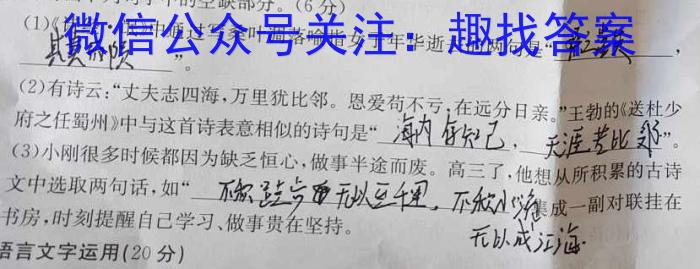 的空缺部分。(6分)
微信公众号关注：趣找答案
(1)《 中通过写桑叶凋落喻指女子年华逝去的两句是“
其黄而陨”。
(2)有诗云：“丈夫志四海，万里犹比邻。恩爱苟不亏，在远分日亲。”王勃的《送杜少
府之任蜀州》中与这首诗表意相似的诗句是“海内存知己，天涯若比邻”。
(3)小刚很多时候都因为缺乏恒心，做事半途而废。高三了，他想从所积累的古诗
文中选取两句话，如“不积跬步 无以至千里，不积小流 集成一副对联挂在
无以成江海.
书房，时刻提醒自己学习、做事贵在坚持。
语言文字运用(20分)